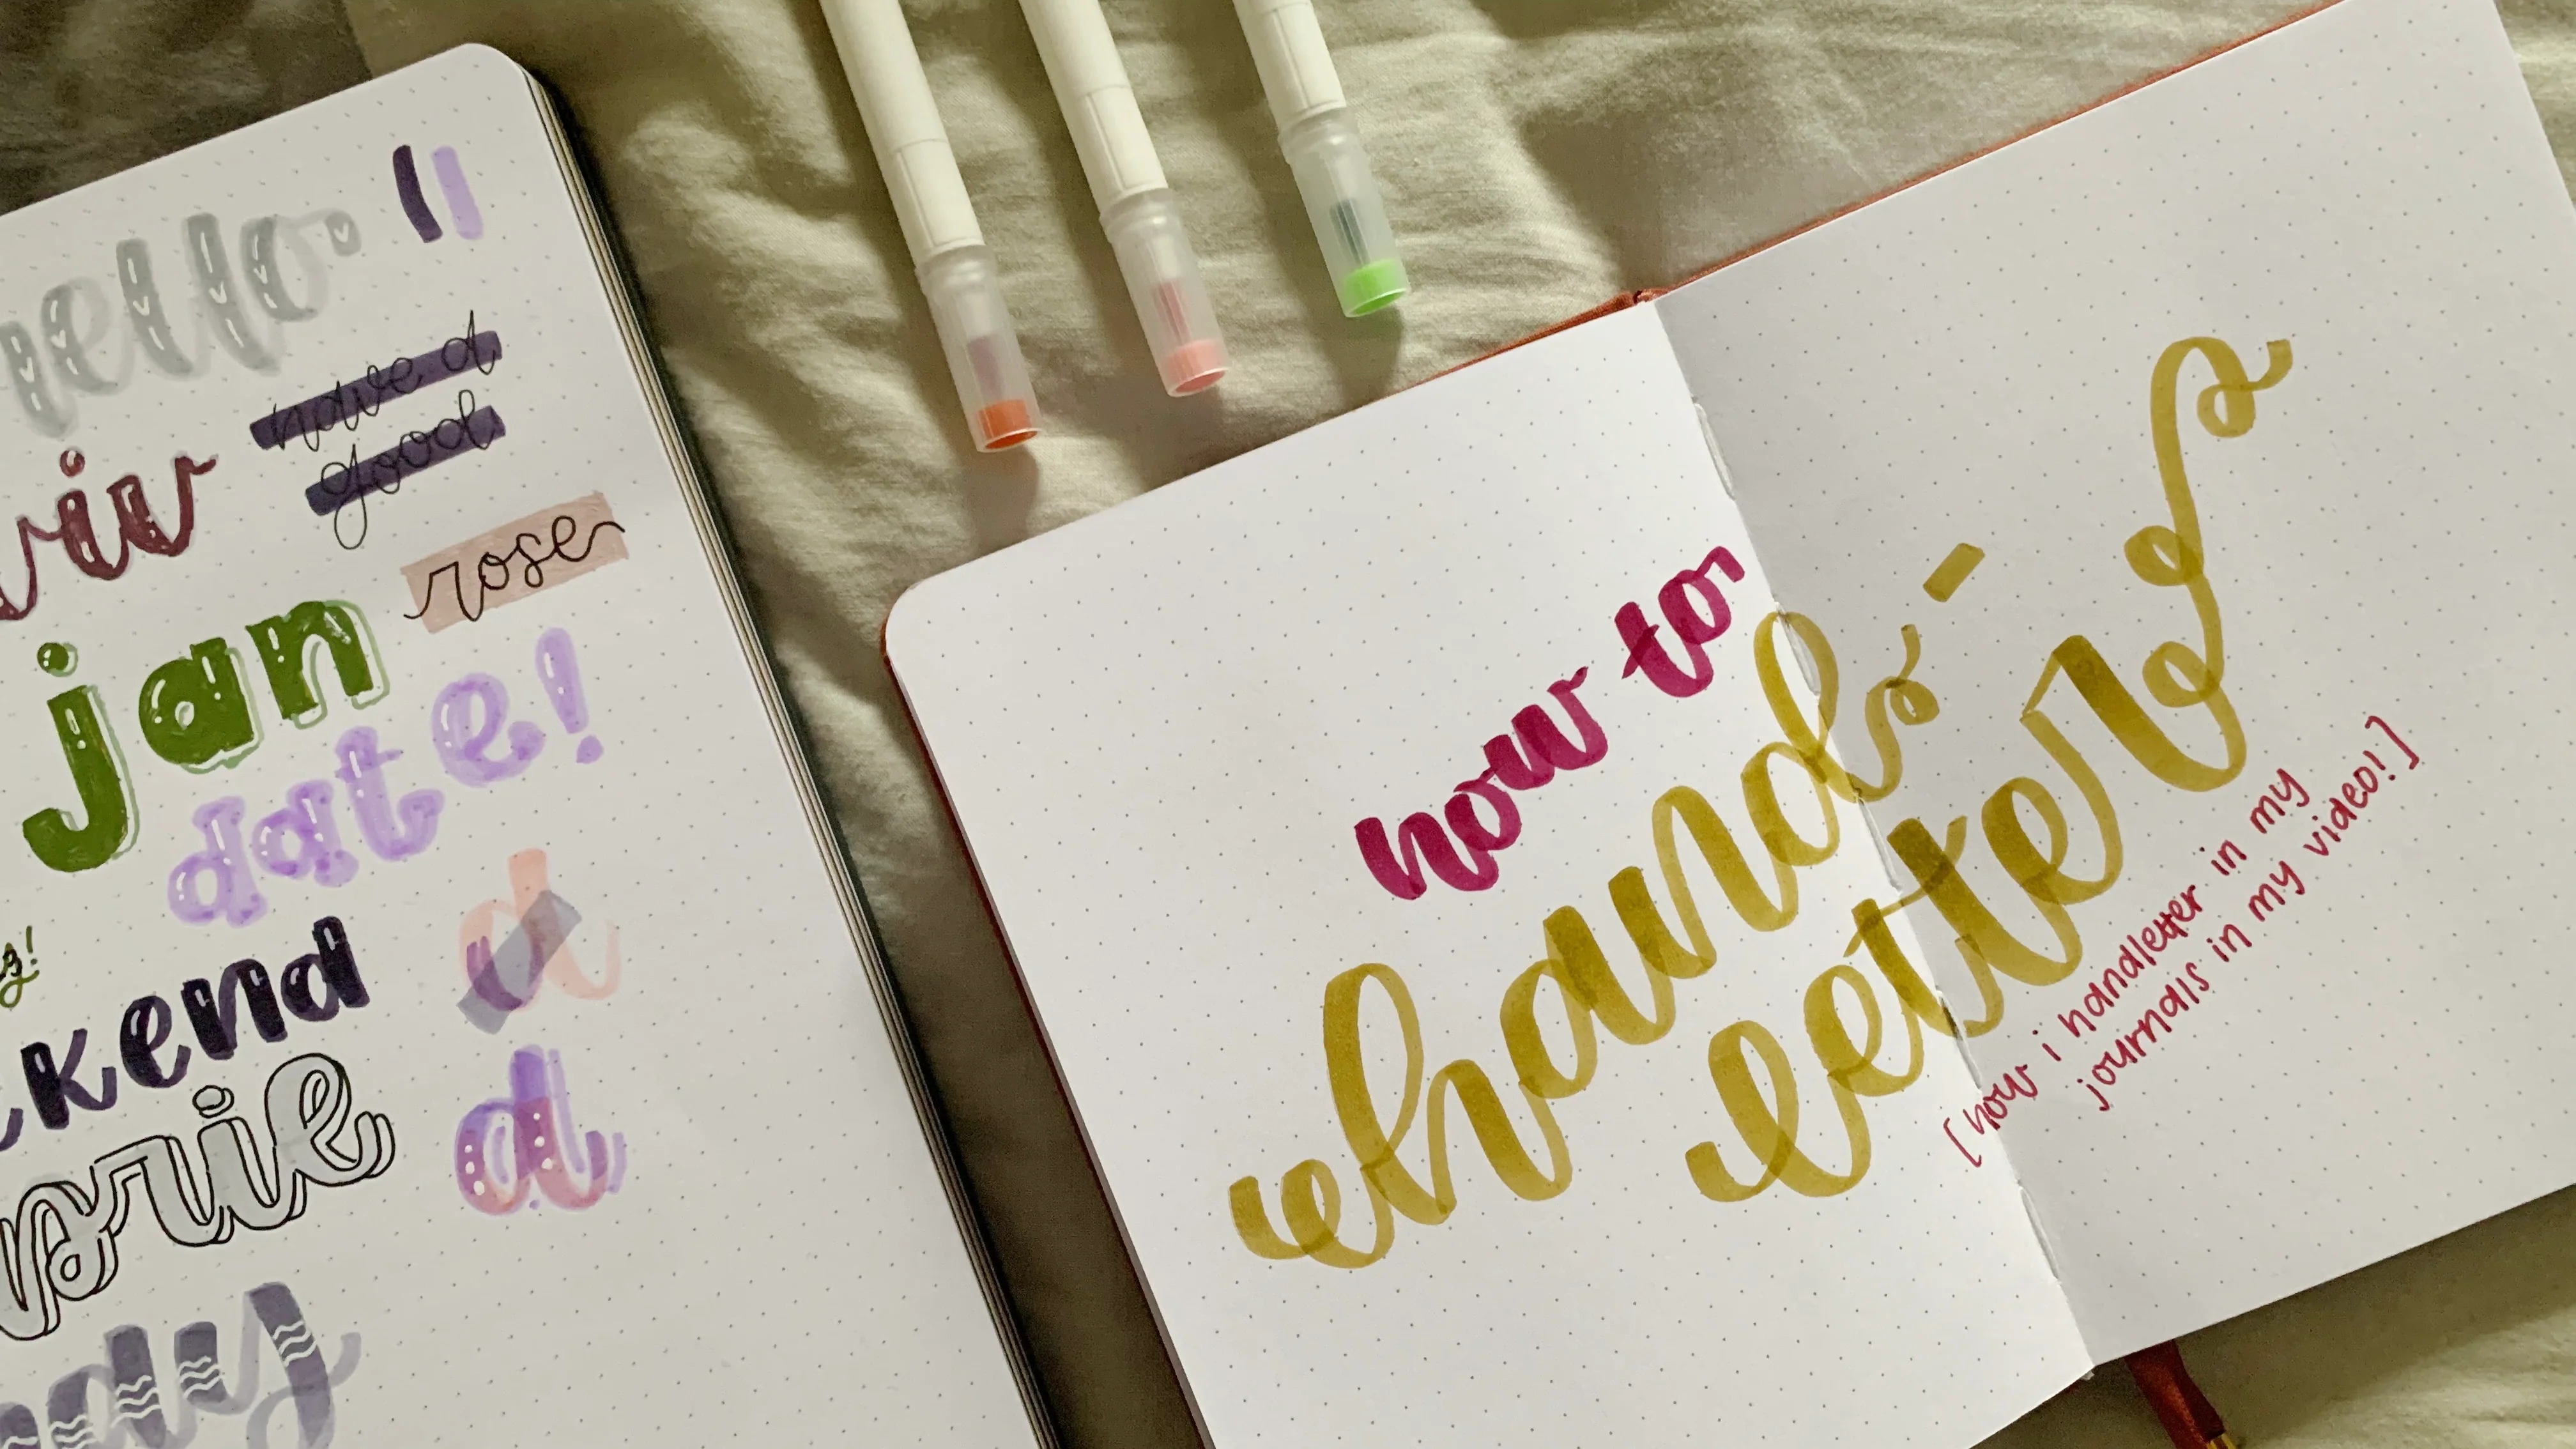 hello
have a
good
rose
jan
date!
kend
d
d
how to
hand-
letter
[how i handletter in my
journals in my video!]